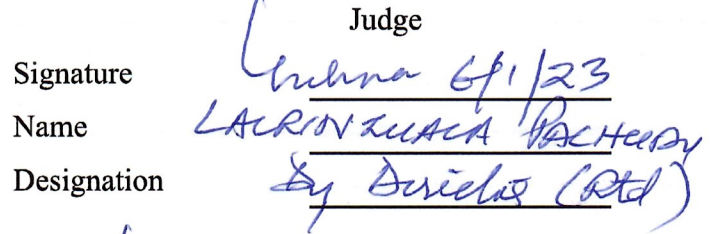 Judge
Signature 6/1/23
Name LALRINZUALA PACHUAU
Designation Dy Director (Rtd)